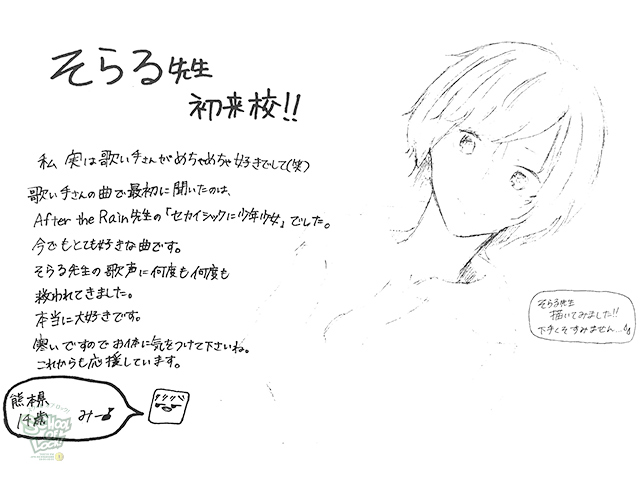 そらる先生
初来校!!
私 実は歌い手さんがめちゃめちゃ好きでして(笑)
歌い手さんの曲で最初に聞いたのは、
After the Rain先生の「セカイシックに少年少女」でした。
今でもとても好きな曲です。
そらる先生の歌声に何度も何度も
救われてきました。
本当に大好きです。
寒いですのでお体に気をつけて下さいね。
これからも応援しています。
そらる先生
描いてみました!!
下手くそすみません…
熊本県
14歳 みー
SCHOOL OF LOCK!